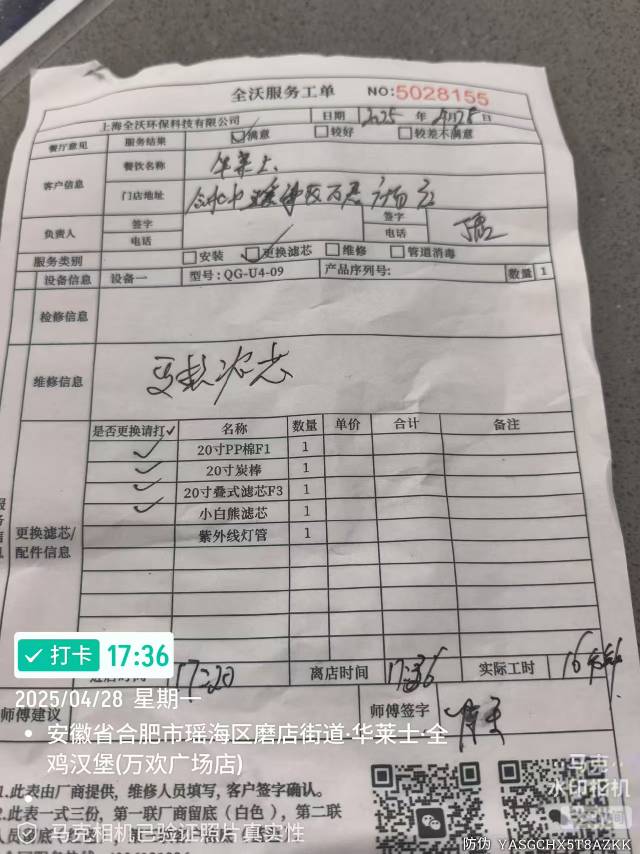 全沃服务工单 NO:5028155
上海全沃环保科技有限公司 日期 2025 年 4月28日
餐厅意见 服务结果 ☑满意 □较好 □较差不满意
客户信息 餐饮名称 华莱士
门店地址 合肥市瑶海区万欢广场店
负责人 签字 签字
电话 电话
服务类别 □安装 ☑更换滤芯 □维修 □管道消毒
设备信息 设备一 型号:QG-U4-09 产品序列号: 数量 1
检修信息
维修信息 更换滤芯
是否更换请打✓ 名称 数量 单价 合计 备注
✓ 20寸PP棉F1 1
✓ 20寸炭棒 1
✓ 20寸叠式滤芯F3 1
✓ 小白熊滤芯 1
紫外线灯管 1
更换滤芯/
配件信息
17:20 离店时间 17:36 实际工时 16分钟
师傅建议 师傅签字
打卡 17:36
2025/04/28 星期一
安徽省合肥市瑶海区磨店街道·华莱士·全
鸡汉堡(万欢广场店)
1.此表由厂商提供，维修人员填写，客户签字确认。
2.此表一式三份，第一联厂商留底（白色），第二联
马克相机已验证照片真实性
马克
水印相机
防伪 YASGCHX5T8AZKK